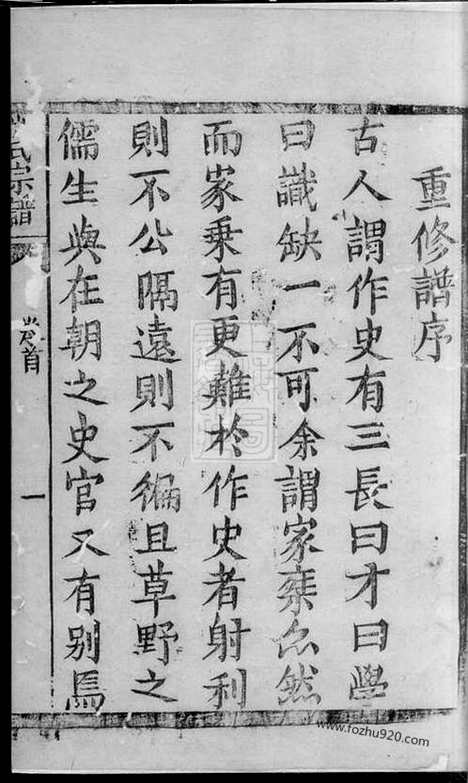 重修譜序
古人謂作史有三長曰才曰學
曰識缺一不可余謂家乘亦然
而家乘有更難於作史者射利
則不公隔遠則不徧且草野之
儒生與在朝之史官又有別焉
氏宗譜
卷首
一
www.fozhu920.com